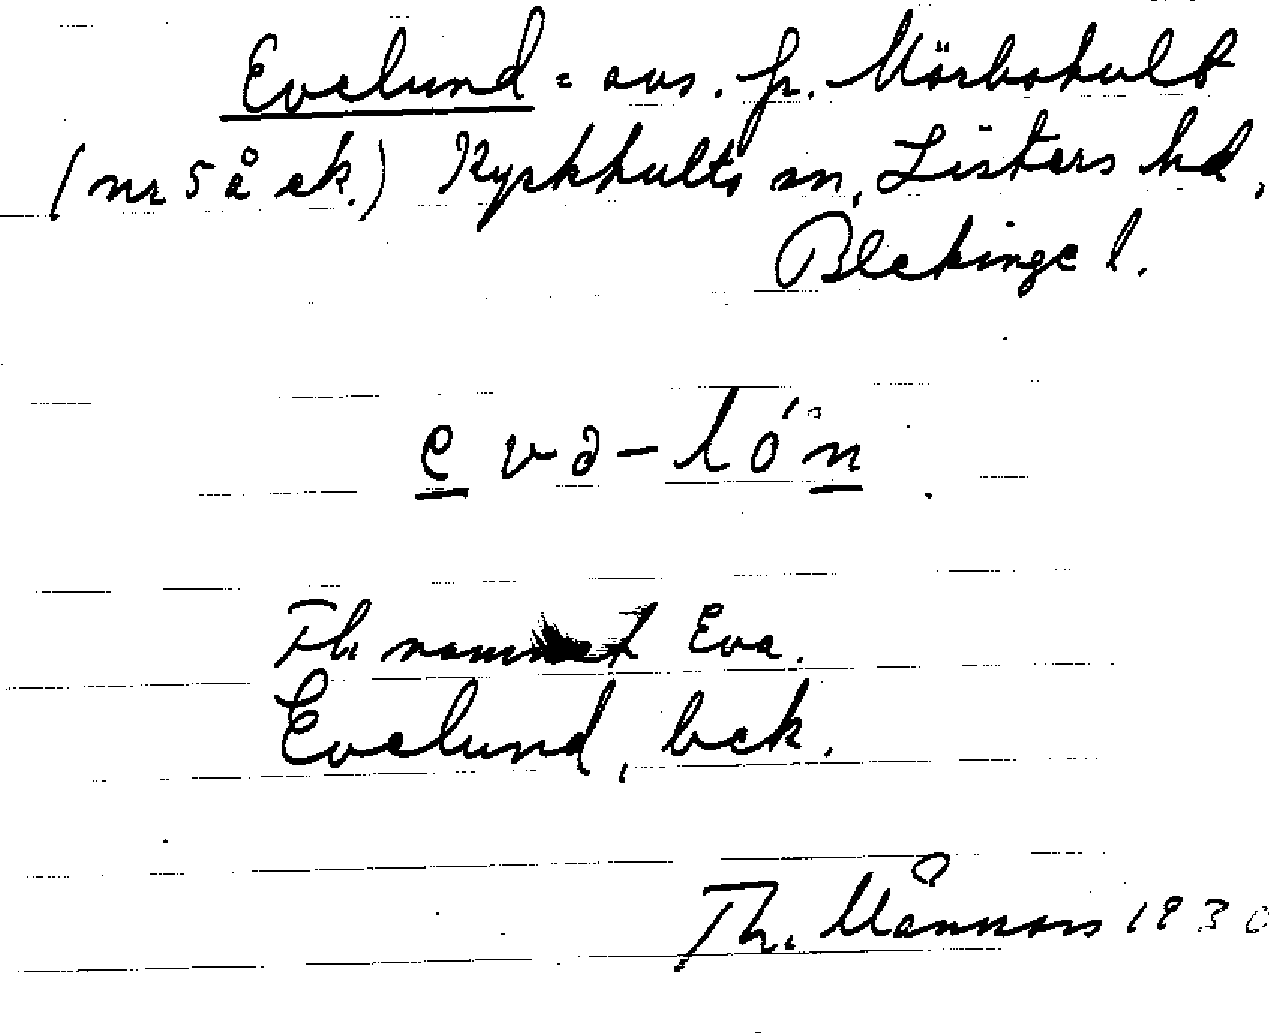 Evelund = avs. fr. Mörbohult
(nr 5 å ek.) Kyrkhults sn, Listers hd,
Blekinge l.
e v ə - lón
Th namnet Eva.
Evelund, bek.
Th. Månsson 1930